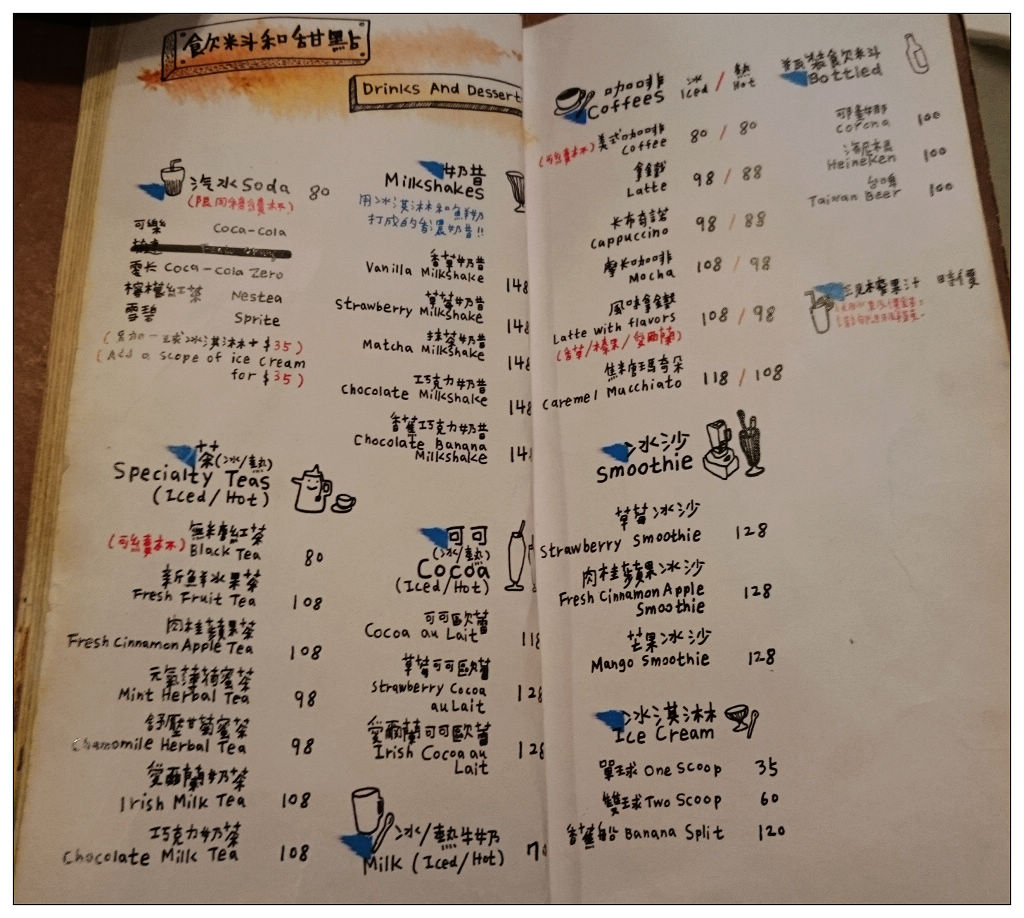 飲料和甜點
Drinks And Dessert
汽水 Soda 80
(限同種續杯)
可樂 Coca-Cola
零卡 Coca-Cola Zero
檸檬紅茶 Nestea
雪碧 Sprite
(另加一球冰淇淋+$35)
(Add a scope of ice cream
for $35)
茶(冰/熱)
Specialty Teas
(Iced/Hot)
(可續杯) 無糖紅茶
Black Tea 80
新鮮水果茶
Fresh Fruit Tea 108
肉桂蘋果茶
Fresh Cinnamon Apple Tea 108
元氣薄荷蜜茶
Mint Herbal Tea 98
舒壓甘菊蜜茶
Chamomile Herbal Tea 98
愛爾蘭奶茶
Irish Milk Tea 108
巧克力奶茶
Chocolate Milk Tea 108
奶昔
Milkshakes
用冰淇淋和鮮奶
打成的香濃奶昔!!
香草奶昔
Vanilla Milkshake 148
草莓奶昔
Strawberry Milkshake 148
抹茶奶昔
Matcha Milkshake 148
巧克力奶昔
Chocolate Milkshake 148
香蕉巧克力奶昔
Chocolate Banana
Milkshake 14
可可
(冰/熱)
Cocoa
(Iced/Hot)
可可歐蕾
Cocoa au Lait 118
草莓可可歐蕾
Strawberry Cocoa
au Lait 128
愛爾蘭可可歐蕾
Irish Cocoa au
Lait 128
冰/熱牛奶
Milk (Iced/Hot) 70
咖啡 冰 / 熱
Coffees Iced / Hot
(可續杯) 美式咖啡
Coffee 80 / 80
拿鐵
Latte 98 / 88
卡布奇諾
Cappuccino 98 / 88
摩卡咖啡
Mocha 108 / 98
風味拿鐵
Latte with flavors 108 / 98
(香草/榛果/愛爾蘭)
焦糖瑪奇朵
Caremel Macchiato 118 / 108
冰沙
Smoothie
草莓冰沙
Strawberry Smoothie 128
肉桂蘋果冰沙
Fresh Cinnamon Apple
Smoothie 128
芒果冰沙
Mango Smoothie 128
冰淇淋
Ice Cream
單球 One Scoop 35
雙球 Two Scoop 60
香蕉船 Banana Split 120
瓶裝飲料
Bottled
可樂娜
Corona 100
海尼根
Heineken 100
台啤
Taiwan Beer 100
現榨果汁 時價